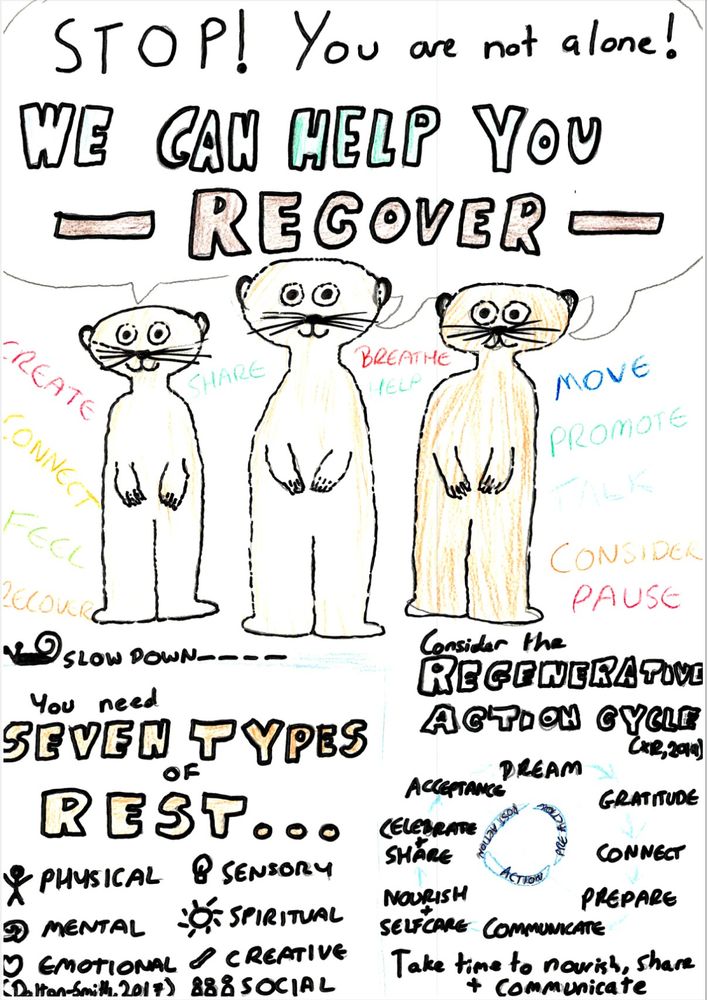 STOP! You are not alone!
WE CAN HELP YOU
RECOVER
CREATE
SHARE
BREATHE
HELP
MOVE
CONNECT
PROMOTE
FEEL
TALK
RECOVER
CONSIDER
PAUSE
SLOW DOWN
You need
SEVEN TYPES
OF
REST...
PHYSICAL
SENSORY
MENTAL
SPIRITUAL
EMOTIONAL
CREATIVE
(Dalton-Smith, 2017)
SOCIAL
Consider the
REGENERATIVE
ACTION CYCLE
(XR, 2019)
DREAM
GRATITUDE
CONNECT
PREPARE
COMMUNICATE
NOURISH
+
SELFCARE
CELEBRATE
+
SHARE
ACCEPTANCE
PRE ACTION
ACTION
POST ACTION
Take time to nourish, share
+ communicate